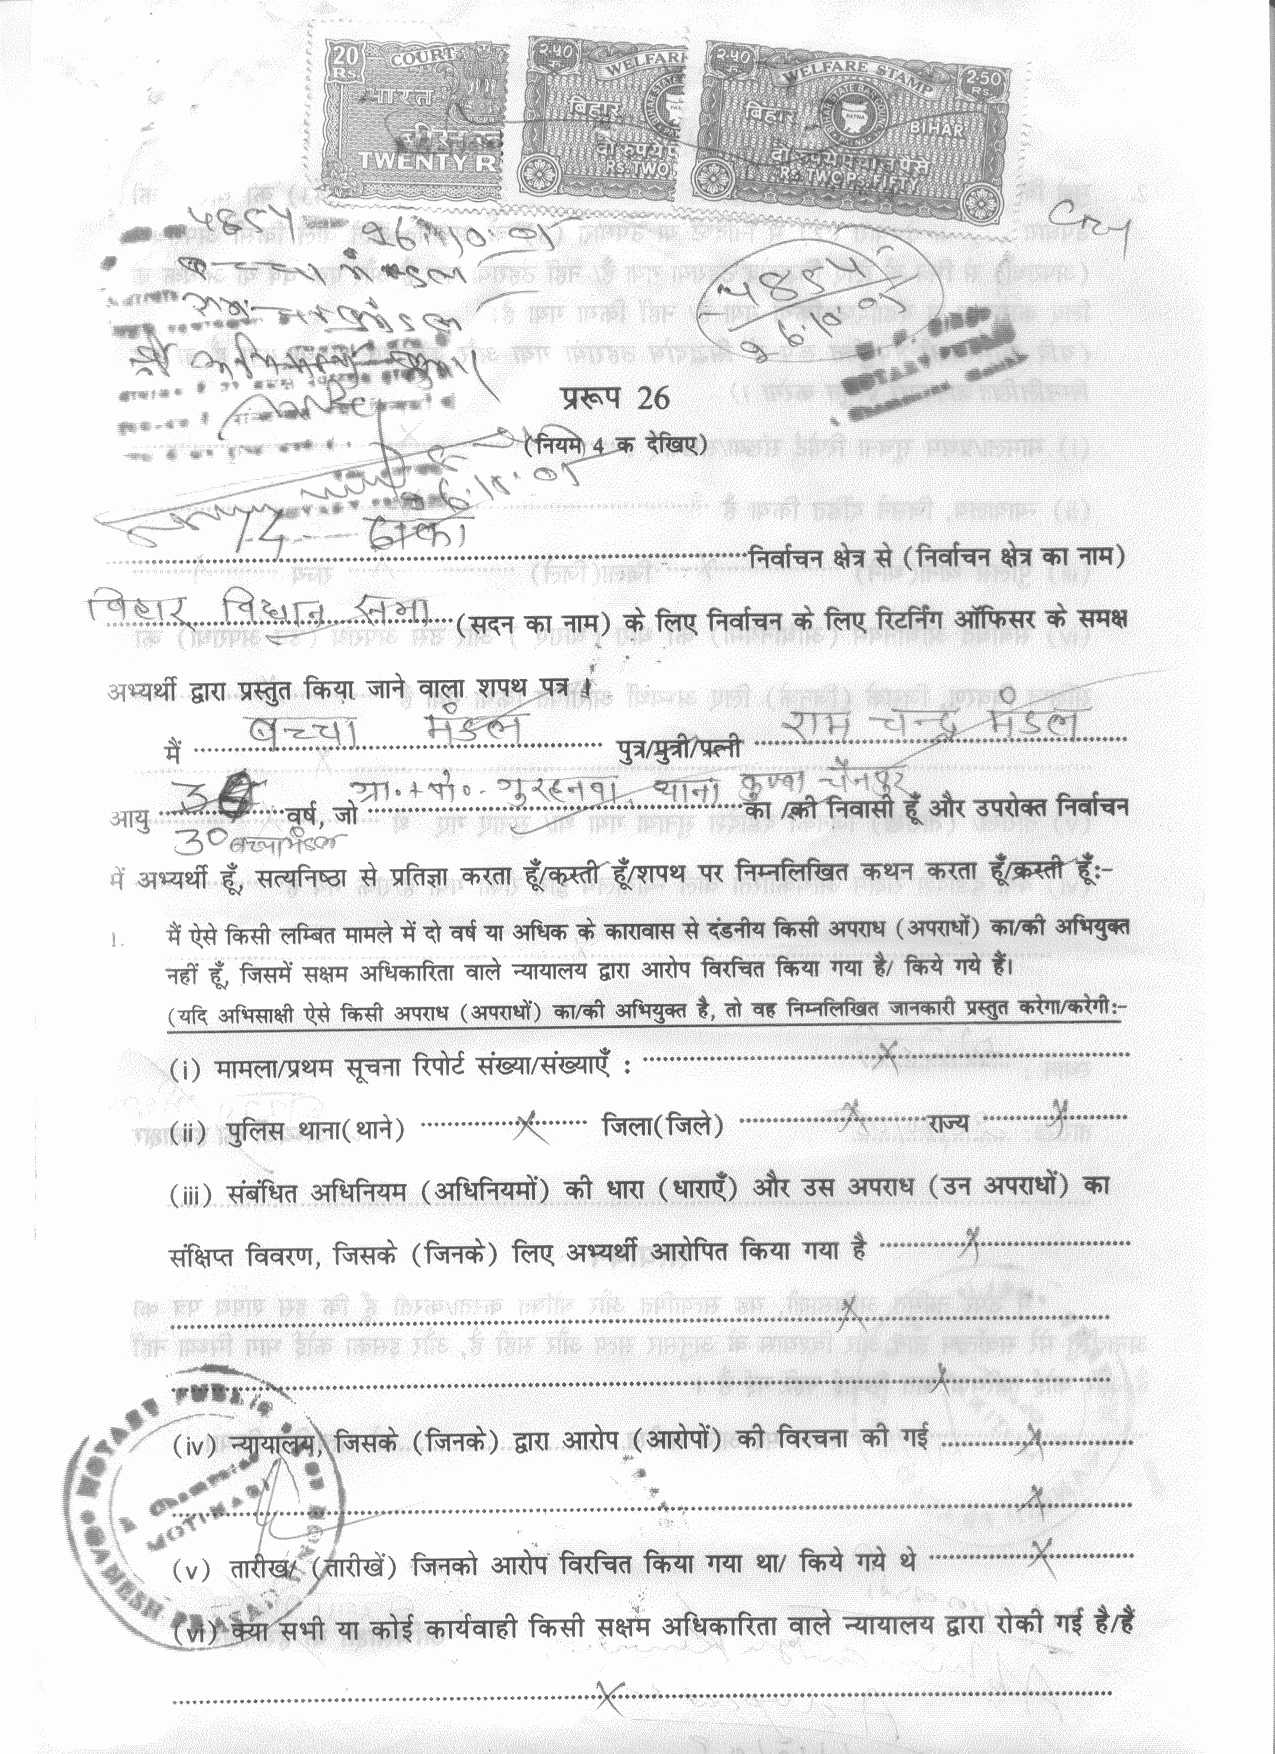 20 Rs. COURT भारत TWENTY R
2.50 WELFARE बिहार दो रुपये RS. TWO
2.50 WELFARE STAMP 2.50 Rs. बिहार BIHAR दो रुपये पचास पैसे Rs. TWO Ps. FIFTY
5854 26.10.05
बच्चा मंडल
5854
26.10.05
NOTARY PUBLIC
प्ररूप 26
(नियम 4 क देखिए)
26.10.05
ढाका
निर्वाचन क्षेत्र से (निर्वाचन क्षेत्र का नाम)
बिहार विधान सभा (सदन का नाम) के लिए निर्वाचन के लिए रिटर्निंग ऑफिसर के समक्ष
अभ्यर्थी द्वारा प्रस्तुत किया जाने वाला शपथ पत्र ।
मैं बच्चा मंडल पुत्र/पुत्री/पत्नी राम चन्द्र मंडल
आयु वर्ष, जो ग्रा.+पो.- गुरहनवा, थाना कुण्वा चैनपुर का /की निवासी हूँ और उपरोक्त निर्वाचन
30 बच्चा मंडल
में अभ्यर्थी हूँ, सत्यनिष्ठा से प्रतिज्ञा करता हूँ/करती हूँ/शपथ पर निम्नलिखित कथन करता हूँ/करती हूँ:-
1. मैं ऐसे किसी लम्बित मामले में दो वर्ष या अधिक के कारावास से दंडनीय किसी अपराध (अपराधों) का/की अभियुक्त
नहीं हूँ, जिसमें सक्षम अधिकारिता वाले न्यायालय द्वारा आरोप विरचित किया गया है/ किये गये हैं।
(यदि अभिसाक्षी ऐसे किसी अपराध (अपराधों) का/की अभियुक्त है, तो वह निम्नलिखित जानकारी प्रस्तुत करेगा/करेगी:-
(i) मामला/प्रथम सूचना रिपोर्ट संख्या/संख्याएँ : X
(ii) पुलिस थाना(थाने) X जिला(जिले) X राज्य X
(iii) संबंधित अधिनियम (अधिनियमों) की धारा (धाराएँ) और उस अपराध (उन अपराधों) का
संक्षिप्त विवरण, जिसके (जिनके) लिए अभ्यर्थी आरोपित किया गया है X
X
X
(iv) न्यायालय, जिसके (जिनके) द्वारा आरोप (आरोपों) की विरचना की गई X
X
(v) तारीख/ (तारीखें) जिनको आरोप विरचित किया गया था/ किये गये थे X
(vi) क्या सभी या कोई कार्यवाही किसी सक्षम अधिकारिता वाले न्यायालय द्वारा रोकी गई है/हैं
X
NOTARY PUBLIC
MOTIHARI